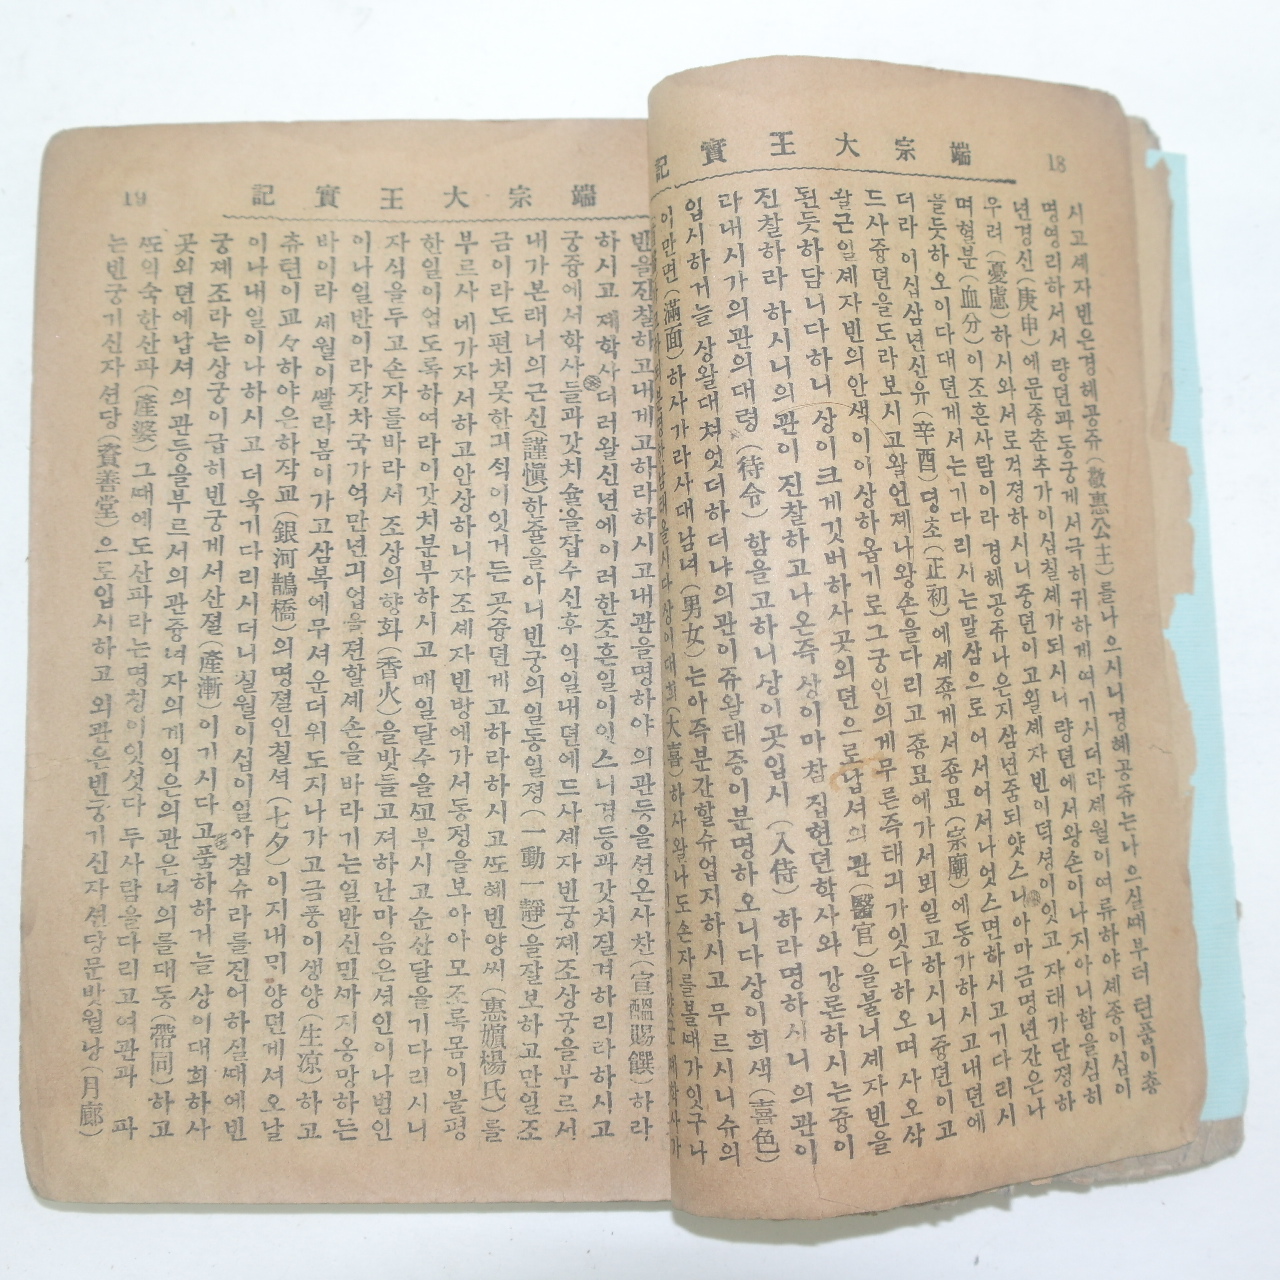 18
端宗大王實記
시고셰자빈은경혜공쥬(敬惠公主)를나으시니경혜공쥬는나으실때부터텬픔이총
명영리하서서량뎐과동궁게서극히귀하게여기시더라셰월이여류하야셰종이십이
년경신(庚申)에문종춘추가이십칠셰가되시니량뎐에서왕손이나지아니함을심히
우려(憂慮)하시와서로걱졍하시니중뎐이고왈셰자빈이덕셩이잇고자태가단졍하
며혈분(血分)이조흔사람이라경혜공쥬나은지삼년중되얏스니아마금명년간은나
을듯하오이다대뎐게서는기다리시는말삼으로어서어서나엇스면하시고기다리시
더라이십삼년신유(辛酉)뎡초(正初)에셰죵게서종묘(宗廟)에동가하시고내뎐에
드사즁뎐을도라보시고왈언제나왕손을다리고종묘에가서뵈일고하시니즁뎐이고
왈근일셰자빈의안색이이상하옵기로그궁인의게무른즉태긔가잇다하오며사오삭
된듯하답니다하니상이크게깃버하사곳외뎐으로납셔의관(醫官)을불너셰자빈을
진찰하라하시니의관이진찰하고나온즉상이마참집현뎐학사와강론하시는즁이
라내시가의관의대령(待令)함을고하니상이곳입시(入侍)하라명하시니의관이
입시하거늘상왈대쳐엇더하더냐의관이쥬왈태증이분명하오니다상이희색(喜色)
이만면(滿面)하사가라사대남녀(男女)는아즉분간할슈업지하시고무르시니슈의
19
端宗大王實記
빈을진찰하고내게고하라하시고내관을명하야의관등을션온사찬(宣醞賜饌)하라
하시고졔학사더러왈신년에이러한조흔일이잇스니경등과갓치질겨하리라하시고
궁즁에서학사들과갓치슐을잡수신후익일내뎐에드사셰자빈궁졔조상궁을부르서
내가본래너의근신(謹愼)한줄을아니빈궁의일동일졍(一動一靜)을잘보하고만일조
금이라도편치못한긔색이잇거든곳즁뎐게고하라하시고또혜빈양씨(惠嬪楊氏)를
부르사네가자서하고안상하니자조셰자빈방에가서동정을보아아모조록몸이불평
한일이업도록하여라이갓치분부하시고매일달수을꼽으시고순산달을기다리시니
자식을두고손자를바라서조상의향화(香火)을밧들고져하난마음은셔인이나범인
이나일반이라장차국가억만년긔업을젼할셰손을바라기는일반신민까지옹망하든
바이라셰월이빨라봄이가고삼복에무셔운더위도지나가고금풍이생양(生凉)하고
츄텬이교々하야은하작교(銀河鵲橋)의명졀인칠셕(七夕)이지내미양뎐게셔오날
이나내일이나하시고더욱기다리시더니칠월이십이일아침슈라를진어하실때에빈
궁졔조라는상궁이급히빈궁게서산졈(產漸)이기시다고품하하거늘상이대희하사
곳외뎐에납셔의관등을부르서의관중녀자의게익은의관은녀의를대동(帶同)하고
또익숙한산파(產婆)그때에도산파라는명칭이잇섯다두사람을다리고여관과 파
는빈궁기신자션당(資善堂)으로입시하고외관은빈궁기신자션당문밧월낭(月廊)